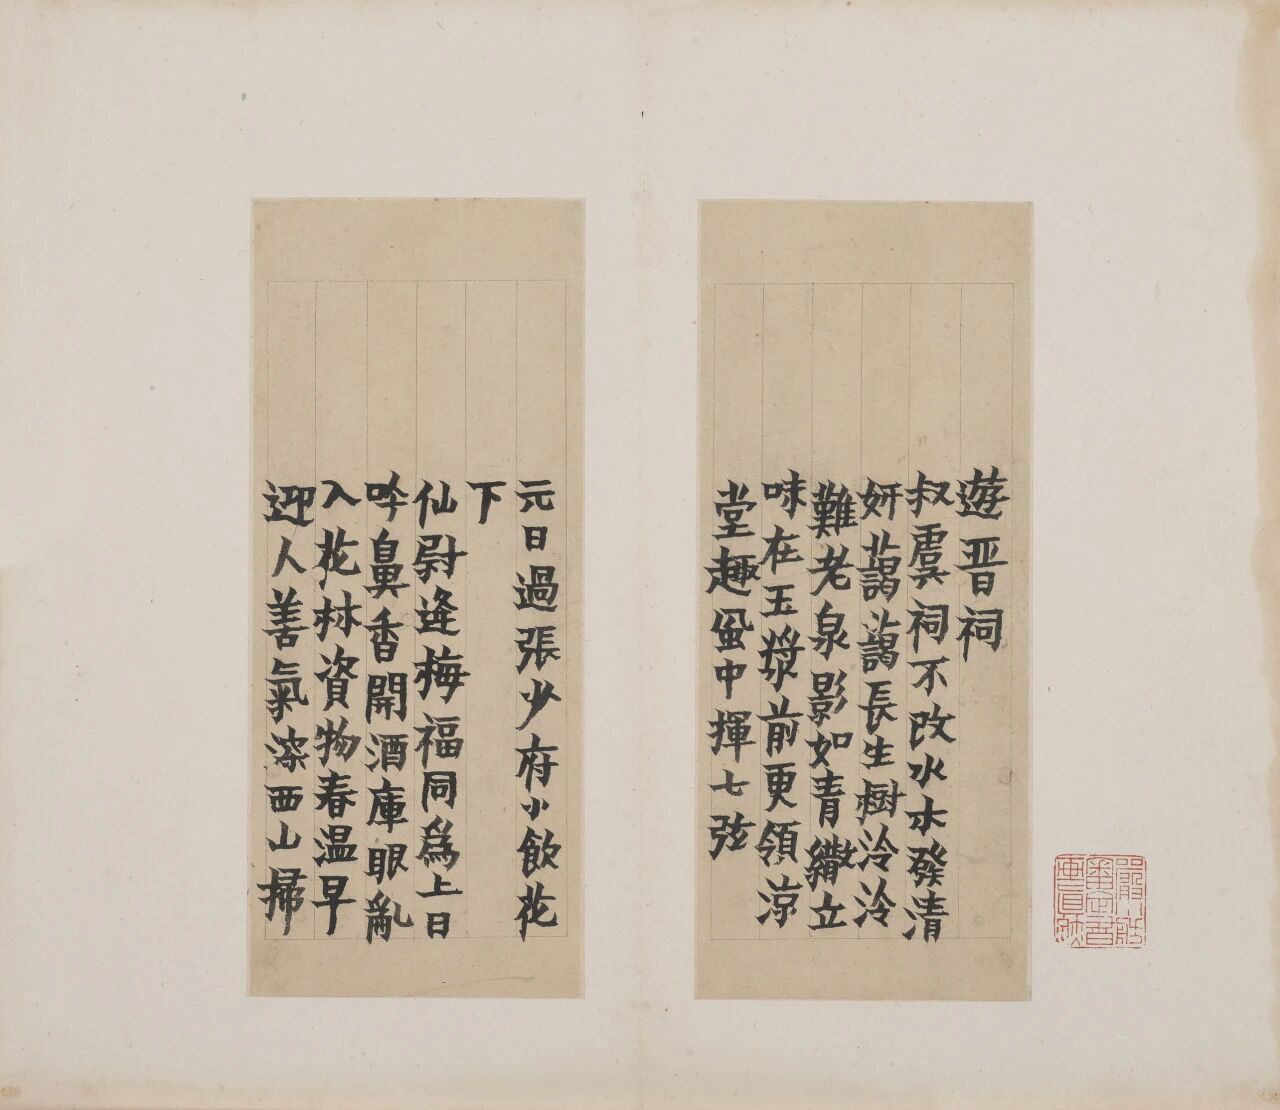 遊晋祠
叔虞祠不改水木發清
妍藹藹長生樹泠泠
難老泉影如青黼立
味在玉漿前更領涼
堂趣風中揮七弦
元日過張少府小飲花
下
仙尉逄梅福同爲上日
吟鼻香開酒庫眼亂
入花林資物春温早
迎人善氣深西山掃